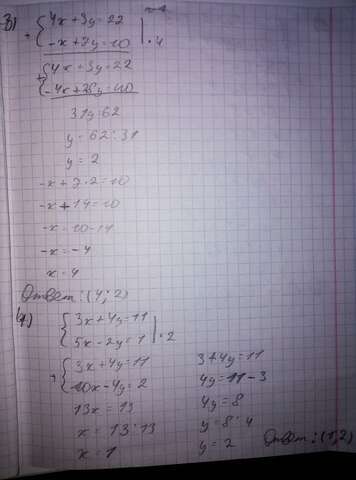 3) + { 4x+3y=22
-x+7y=10 | ·4
+ { 4x+3y=22
-4x+28y=40
31y=62
y=62:31
y=2
-x+7·2=10
-x+14=10
-x=10-14
-x=-4
x=4
Ответ: (4; 2)
4) { 3x+4y=11
5x-2y=1 | ·2
+ { 3x+4y=11
10x-4y=2
13x=13
x=13:13
x=1
3+4y=11
4y=11-3
4y=8
y=8:4
y=2
Ответ: (1; 2)